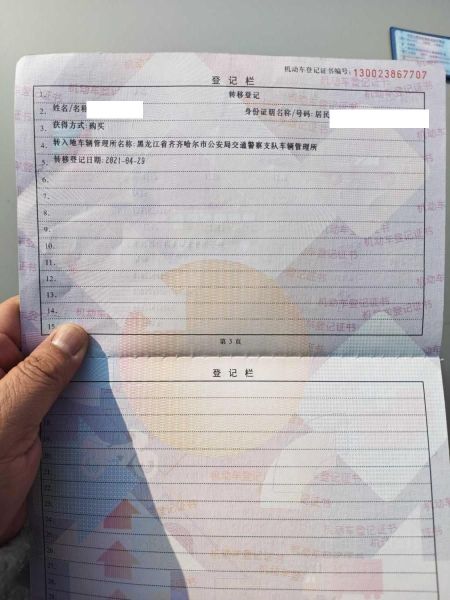 机动车登记证书编号:130023867707
登记栏
1. 转移登记
2. 姓名/名称 身份证明名称/号码:居民
3. 获得方式:购买
4. 转入地车辆管理所名称:黑龙江省齐齐哈尔市公安局交通警察支队车辆管理所
5. 转移登记日期:2021-04-29
6.
7.
8.
9.
10.
11.
12.
13.
14.
15
第3页
登记栏